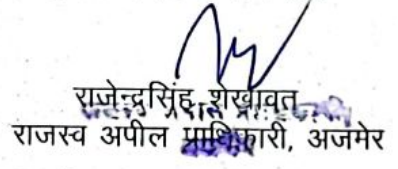 राजेन्द्रसिंह शेखावत
राजस्व अपील प्राधिकारी, अजमेर